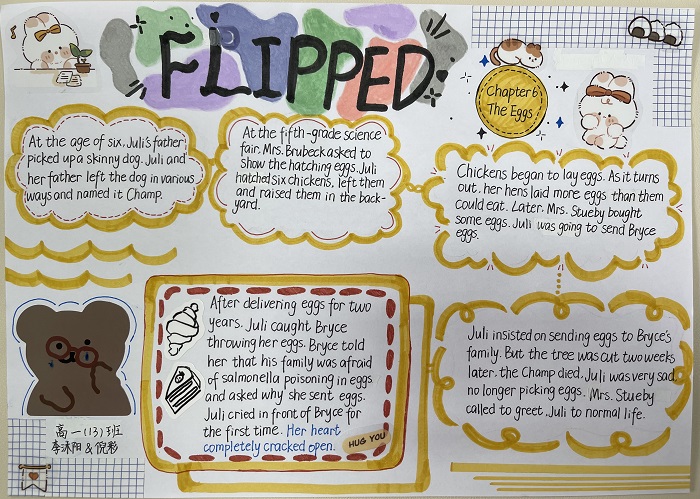 FLIPPED
Chapter 6
The Eggs
At the age of six, Juli's father
picked up a skinny dog. Juli and
her father left the dog in various
ways and named it Champ.
At the fifth-grade science
fair. Mrs. Brubeck asked to
show the hatching eggs. Juli
hatched six chickens, left them
and raised them in the back-
yard.
Chickens began to lay eggs. As it turns
out, her hens laid more eggs than them
could eat. Later. Mrs. Stueby bought
some eggs. Juli was going to send Bryce
eggs.
Juli insisted on sending eggs to Bryce's
family. But the tree was cut two weeks
later. the Champ died. Juli was very sad
no longer picking eggs. Mrs. Stueby
called to greet Juli to normal life.
After delivering eggs for two
years. Juli caught Bryce
throwing her eggs. Bryce told
her that his family was afraid
of salmonella poisoning in eggs
and asked why she sent eggs.
Juli cried in front of Bryce for
the first time. Her heart
completely cracked open.
HUG YOU
高一(13)班
李沐阳&倪彩